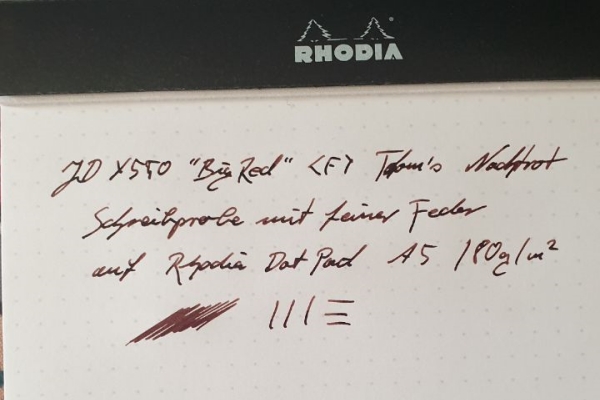 RHODIA
JD X550 "Big Red" <F> Thom's Nachtrot
Schreibprobe mit feiner Feder
auf Rhodia Dot Pad A5 180g/m²